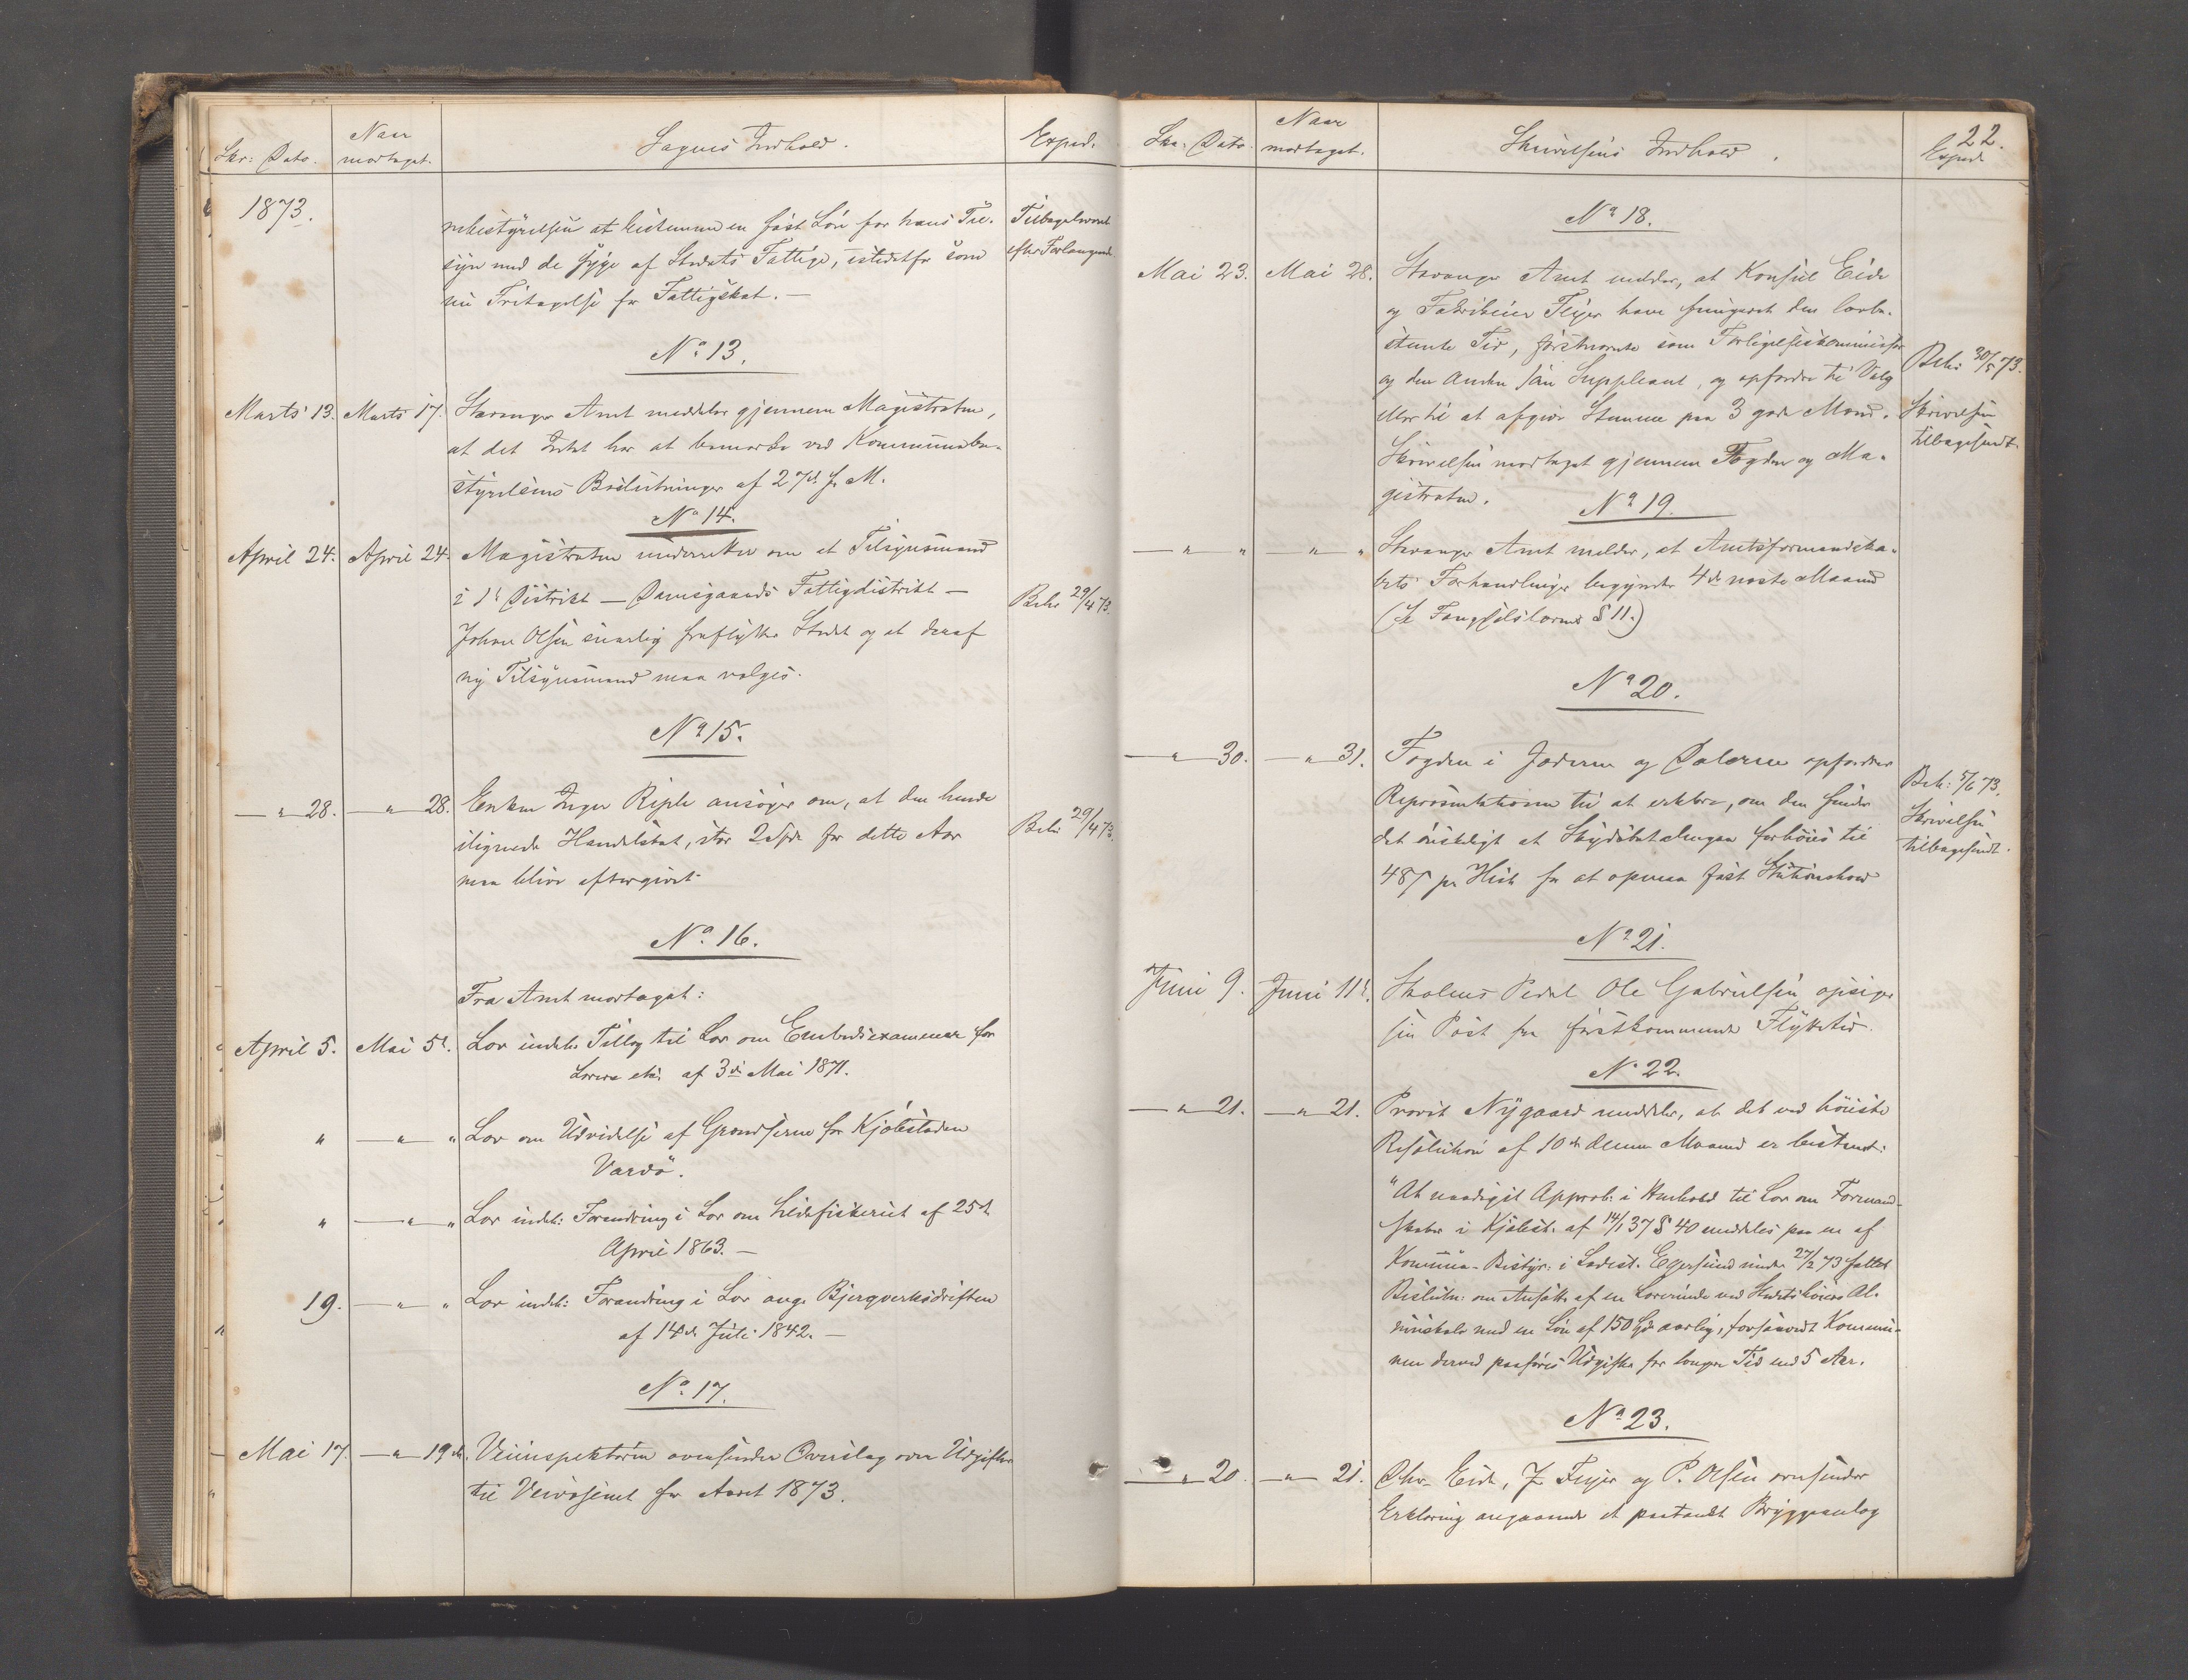 Skr: Dato.
Naar modtaget.
Sagens Indhold.
Exped.
1873.
nebestyrelsen at bestemme en fast Løn for hans Til-
syn med de syge af Stedets Fattige, istedetfor som
nu Fritagelse for Fattigskat. —
Tilbageleveret
efter Forlangende
No 13.
Marts 13. Marts 17. Stavanger Amt meddeler gjennem Magistraten,
at det Intet har at bemærke ved Kommunebe-
styrelsens Beslutninger af 27de f. M.
No 14.
April 24. April 24. Magistraten underretter om at Tilsynsmand
i 1ste Distrikt — Damsgaards Fattigdistrikt —
Beh: 29/4 73.
Johan Olsen snarlig fraflytter Stedet og at deraf
ny Tilsynsmand maa vælges.
No 15.
— " — 28. — " — 28. Enken Inger Riple ansøger om, at den hende
ilignede Handelskat, stor 2 Spd. for dette Aar
Beh: 29/4 73.
maa blive eftergivet.
No 16.
Fra Amt modtaget:
April 5. Mai 5te. Lov indeh. Tillæg til Lov om Embedsexamener for
Lærere etc. af 3die Mai 1871.
" — " — " Lov om Udvidelse af Grændserne for Kjøbstaden
Vardø.
" — " — " Lov indeh: Forandring i Lov om Sildefiskeriet af 25de
April 1863. —
19. — " — " Lov indeh: Forandring i Lov ang. Bjergverksdriften
af 14de Juli 1842. —
No 17.
Mai 17. — " — 19de. Veiinspektøren oversender Overslag over Udgifter
til Veivæsenet for Aaret 1873.
Skr. Dato
Naar modtaget.
Skrivelsens Indhold.
22.
Exped.
No 18.
Mai 23. Mai 28. Stavanger Amt melder, at Konsul Eide
og Fabrikeier Feyer have fungeret den lovbe-
stemte Tid, førstnævnte som Forligelseskommissær
og den Anden som Suppleant, og opfordrer til Valg
Beh: 30/5 73.
eller til at afgive Stemme paa 3 gode Mænd.
Skrivelsen
tilbagesendt.
Skrivelsen modtaget gjennem Fogden og Ma-
gistraten.
No 19.
— " — " — " — " Stavanger Amt melder, at Amtsformandska-
bets Forhandlinger begynder 4de næste Maaned
(Se Fængselslovens § 11.)
No 20.
— " — 30. — " — 31. Fogden i Jæderen og Dalerne opfordrer
Repræsentationen til at erklære, om den finder
Beh: 5/6 73.
det ønskeligt at Skydsbetalingen forhøies til
Skrivelsen
tilbagesendt.
48 ß pr Hest for at opnaa fast Stationshold
No 21.
Juni 9. Juni 11te. Skolens Pedel Ole Gabrielsen opsiger
sin Post fra førstkommende Flyttetid.
No 22.
— " — 21. — " — 21. Provst Nygaard meddeler, at det ved høieste
Resolution af 10de denne Maaned er bestemt:
"At naadigst Approb: i Henhold til Lov om Formand-
skaber i Kjøbst: af 14/1 37 § 40 meddeles paa en af
Kommune-Bestyr: i Ladest. Egersund under 27/2 73 fattet
Beslutn: om Ansætt: af en Lærerinde ved Stedets høiere Al-
mueskole med en Løn af 150 Spd aarlig, forsaavidt Kommu-
nen derved paaføres Udgifter for længere Tid end 5 Aar.
No 23.
— " — 20. — " — 21. Chr. Eide, J. Feyer og P. Olsen oversender
Erklæring angaaende et paatænkt Bryggeanlæg